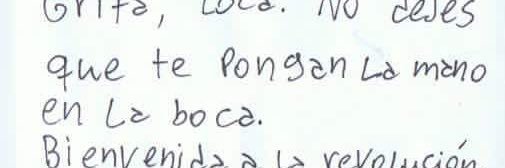 Grita, Loca. No dejes
que te Pongan La mano
en La boca.
Bienvenida a la revolución